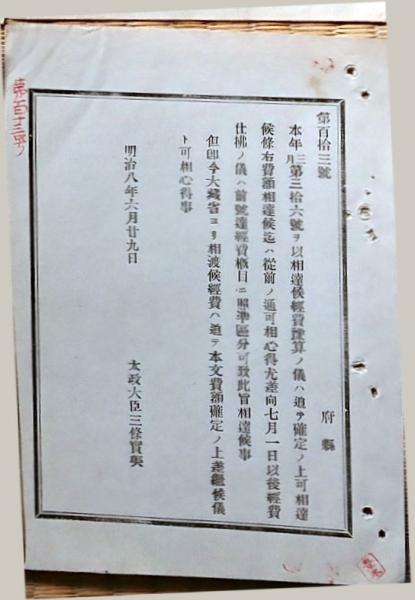 第百拾三號
府縣
本年三月第三拾六號ヲ以相達候經費豫算ノ儀ハ追テ確定ノ上可相達
候條右費額相達候迄ハ從前ノ通可相心得尤差向七月一日以後經費
仕拂ノ儀ハ前號達經費概目ニ照準區分可致此旨相達候事
但即今大藏省ヨリ相渡候經費ハ追テ本文費額確定ノ上差繼候儀
ト可相心得事
明治八年六月廿九日
太政大臣三條實美
第百十三号